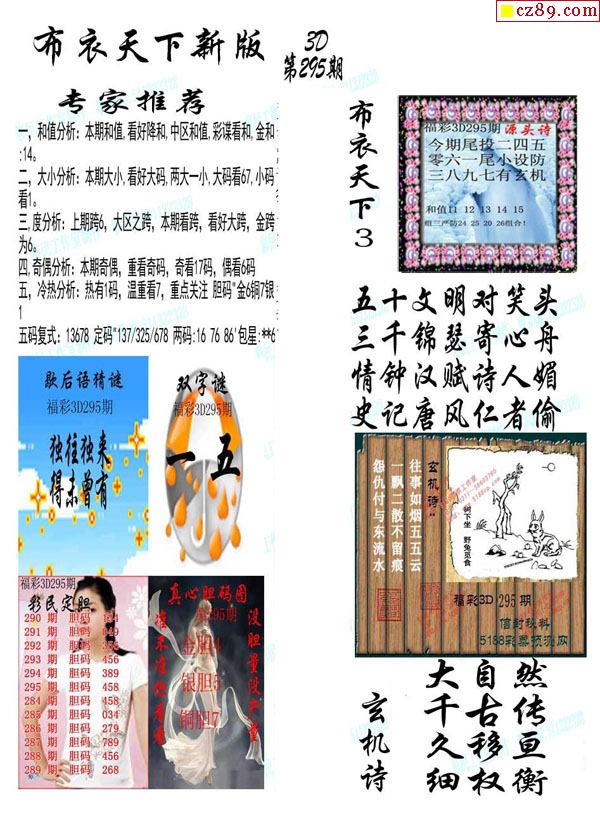 cz89.com
布衣天下新版
3D
第295期
专家推荐
一，和值分析：本期和值,看好降和,中区和值,彩谍看和,金和
:14。
二，大小分析：本期大小,看好大码,两大一小,大码看67,小码
看1。
三,度分析：上期跨6，大区之跨，本期看跨，看好大跨，金跨
为6。
四,奇偶分析：本期奇偶，重看奇码，奇看17码，偶看6码
五，冷热分析：热有1码，温重看7，重点关注 胆码"金6铜7银
1
五码复式：13678 定码"137/325/678 两码:16 76 86'包星:**6
布衣天下3
福彩3D295期 源头诗
今期尾投二四五
零六一尾小设防
三八九七有玄机
和值11 12 13 14 15
组三严防24 25 20 26组合！
五十文明对笑头
三千锦瑟寄心舟
情钟汉赋诗人媚
史记唐风仁者偷
歇后语猜谜
福彩3D295期
独往独来
得未曾有
双字谜
福彩3D295期
一五
玄机诗：
往事如烟五五云
一飘二散不留痕
怨仇付与东流水
树下坐
野兔觅食
福彩3D 295 期
信封秘料
5188彩票预测网
福彩3D295期
彩民定胆
290 期 胆码
291 期 胆码
292 期 胆码
293 期 胆码 456
294 期 胆码 389
295 期 胆码 458
284 期 胆码 458
285 期 胆码 034
286 期 胆码 279
287 期 胆码 789
288 期 胆码 456
289 期 胆码 268
真心胆码图
295期
没胆量没产量
金胆4
银胆5
铜胆7
玄机诗
大自然
千古传
久移亘
细权衡